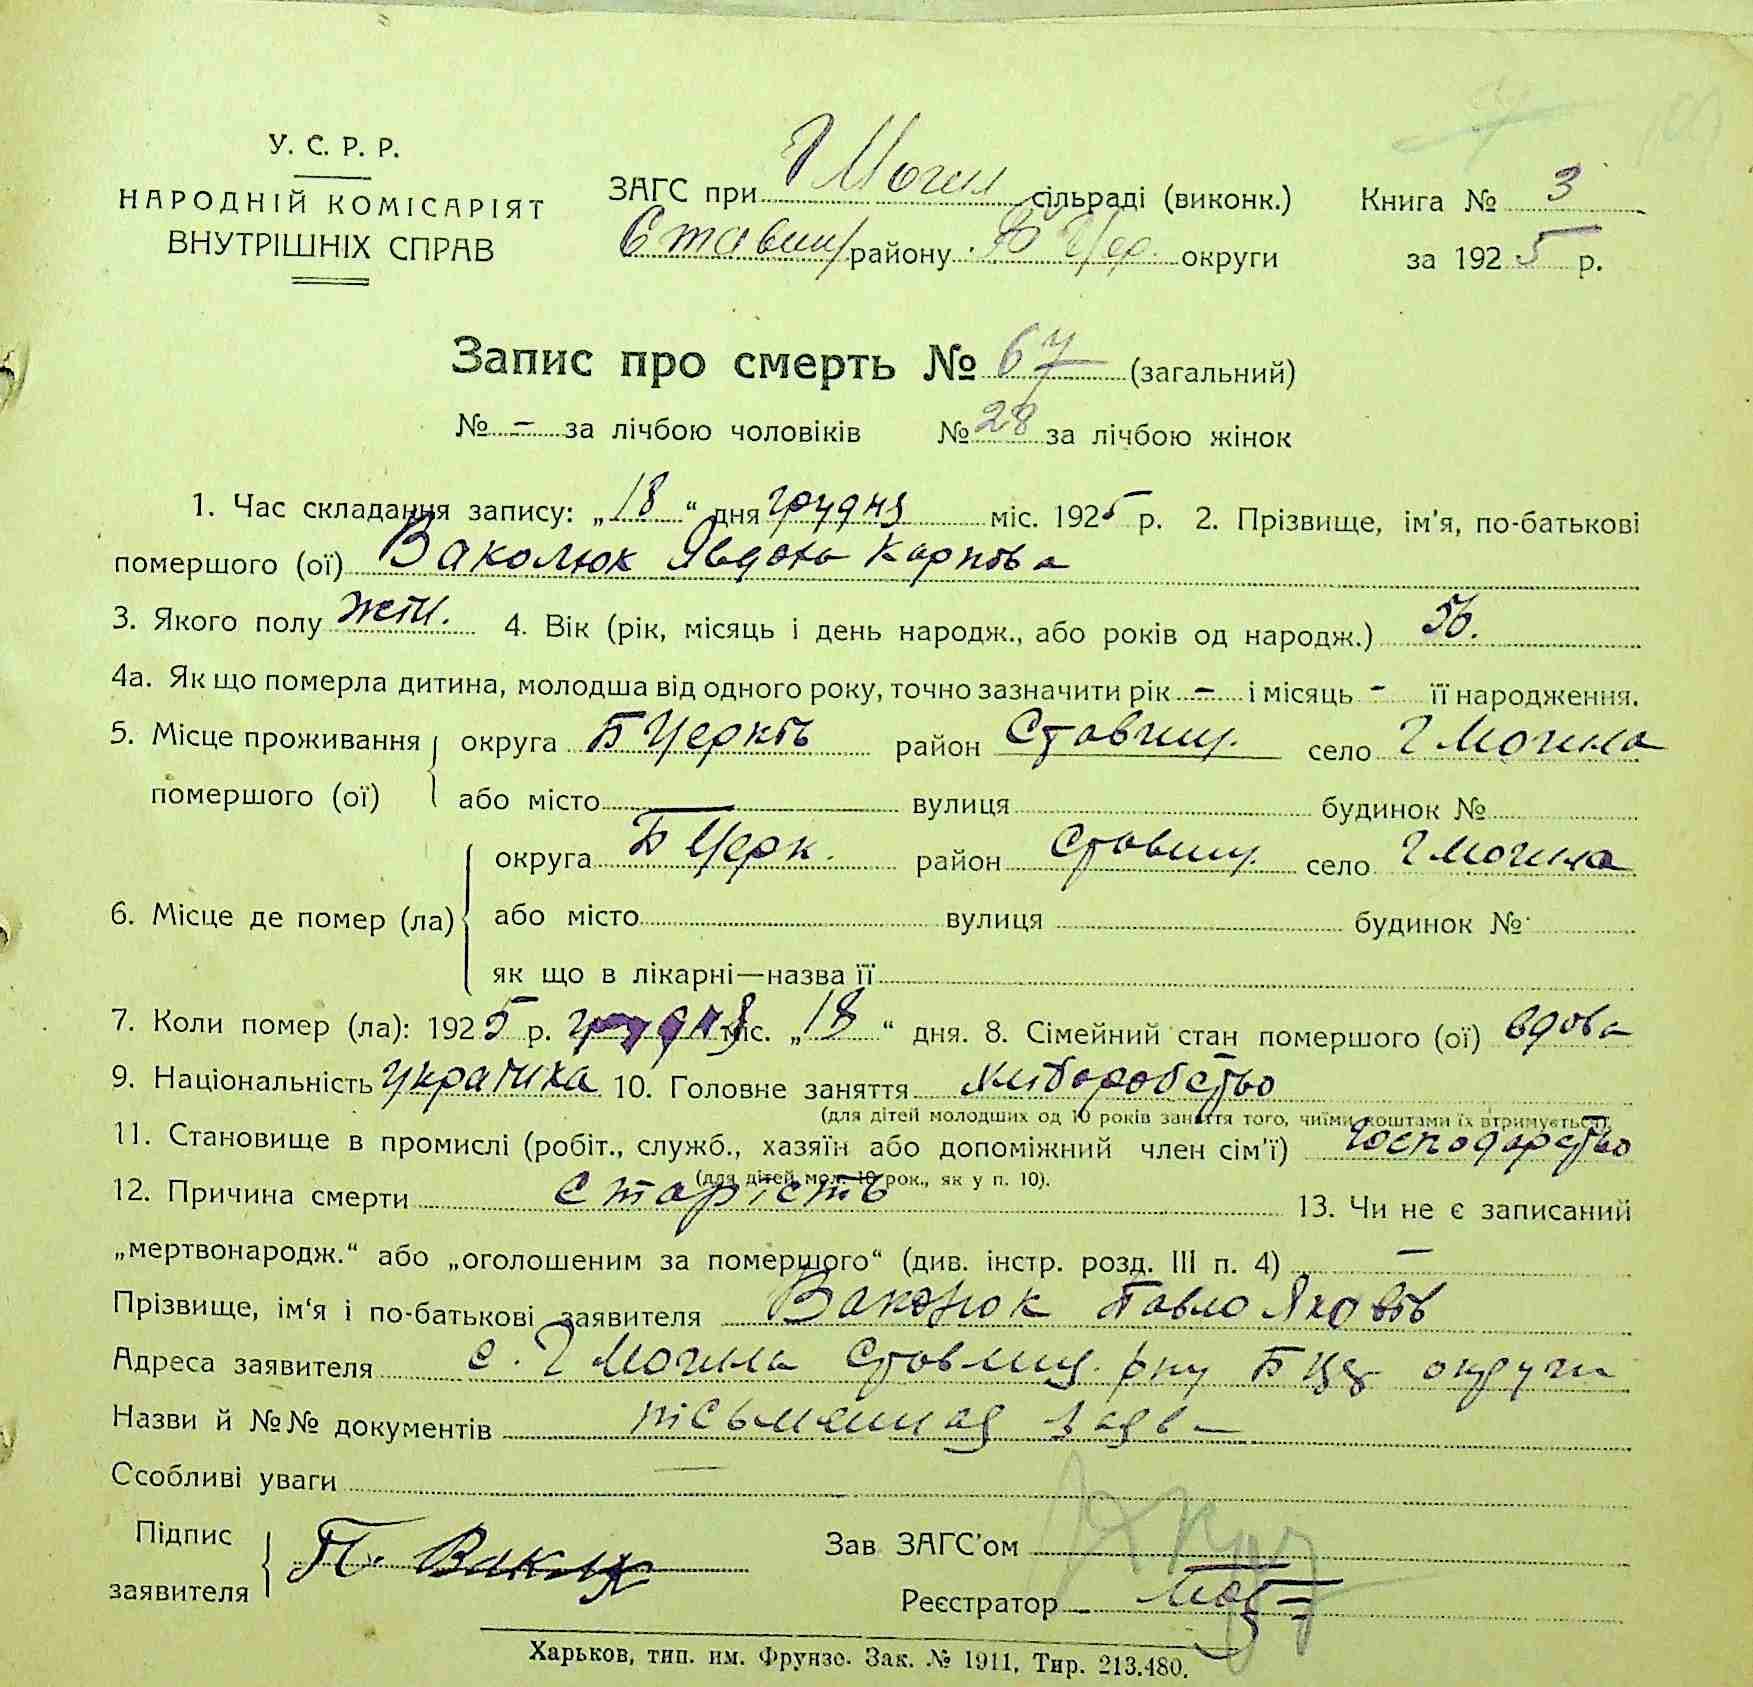 У. С. Р. Р.
НАРОДНІЙ КОМІСАРІЯТ
ВНУТРІШНІХ СПРАВ
ЗАГС при Г Могил сільраді (виконк.) Книга № 3
Ставищ району Б Цер. округи за 1925 р.
Запис про смерть № 67 (загальний)
№ – за лічбою чоловіків № 28 за лічбою жінок
1. Час складання запису: „18“ дня грудня міс. 1925 р. 2. Прізвище, ім'я, по-батькові
помершого (ої) Ваколюк Явдоха Карпова
3. Якого полу жін. 4. Вік (рік, місяць і день народж., або років од народж.) 56.
4а. Як що померла дитина, молодша від одного року, точно зазначити рік – і місяць - її народження.
5. Місце проживання округа Б Церків район Ставищ. село Г Могила
помершого (ої) або місто вулиця будинок №
округа Б Церк. район Ставищ. село Г Могила
6. Місце де помер (ла) або місто вулиця будинок №
як що в лікарні—назва її
7. Коли помер (ла): 1925 р. грудня міс. „18“ дня. 8. Сімейний стан помершого (ої) вдова
9. Національність Українка 10. Головне заняття хліборобство
(для дітей молодших од 10 років заняття того, чиїми коштами їх втримується).
11. Становище в промислі (робіт., служб., хазяїн або допоміжний член сім'ї) господарство
(для дітей мол. 10 рок., як у п. 10).
12. Причина смерти старість 13. Чи не є записаний
„мертвонародж.“ або „оголошеним за помершого“ (див. інстр. розд. III п. 4) –
Прізвище, ім'я і по-батькові заявителя Ваколюк Павло Яковів
Адреса заявителя с. Г Могила Ставищ. рну Б Цер округи
Назви й №№ документів письменная заява
Ссобливі уваги —
Підпис
заявителя П. Вaклюк
Зав ЗАГС'ом
Реєстратор
Харьков, тип. им. Фрунзе. Зак. № 1911, Тир. 213.480.